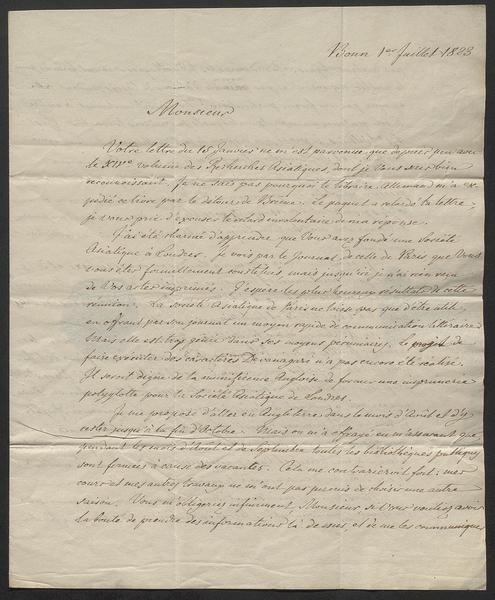 Bonn 1er Juillet 1823
Monsieur
Votre lettre du 15 Janvier ne m'est parvenue que depuis peu avec
le XIVe volume des Recherches Asiatiques, dont je Vous suis bien
reconnoissant. Je ne sais pas pourquoi le libraire Allemand m'a ex-
pédié ce livre par le détour de Brème. Le paquet a retardé la lettre,
je vous prie d'excuser le retard involontaire de ma réponse.
J'ai été charmé d'apprendre que Vous avez fondé une Société
Asiatique à Londres. Je vois par le Journal de celle de Paris que Vous
vous êtes formellement constitués, mais jusqu'ici je n'ai rien vu
de Vos actes imprimés. J'espère les plus heureux résultats de cette
réunion. La société Asiatique de Paris ne laisse pas que d'être utile
en offrant par son journal un moyen rapide de communication littéraire
Mais elle est trop gênée dans ses moyens pécuniaires. Le projet de
faire exécuter des caractères Devanagari n'a pas encore été réalisé.
Il seroit digne de la munificence Angloise de former une imprimerie
polyglotte pour la Société Asiatique de Londres.
Je me propose d'aller en Angleterre dans le mois d'Août et d'y
rester jusqu'à la fin d'Octobre. Mais on m'a effrayé en m'assurant que
pendant les mois d'Août et de Septembre toutes les bibliothèques publiques
sont fermées à cause des vacances. Cela me contrarieroit fort: mes
cours et mes autres travaux ne m'ont pas permis de choisir une autre
saison. Vous m'obligeriez infiniment, Monsieur, si Vous vouliez avoir
la bonté de prendre des informations là dessus, et de me les communiquer